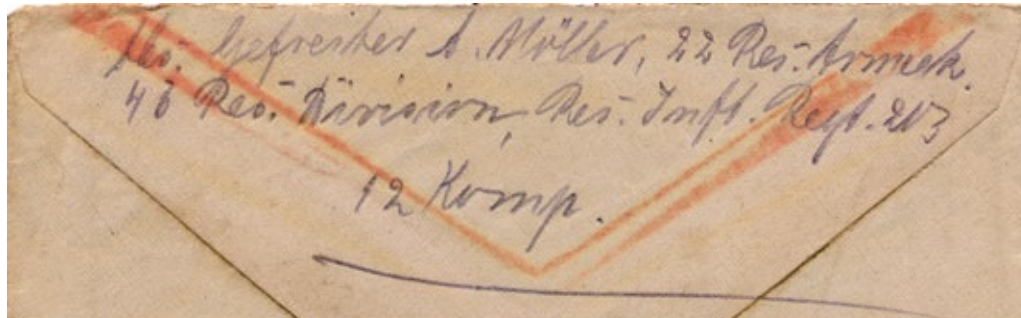 Abs. Gefreiter A. Möller, 22 Res. Armeek.
46 Res. Division, Res. Inft. Regt. 213
12 Komp.